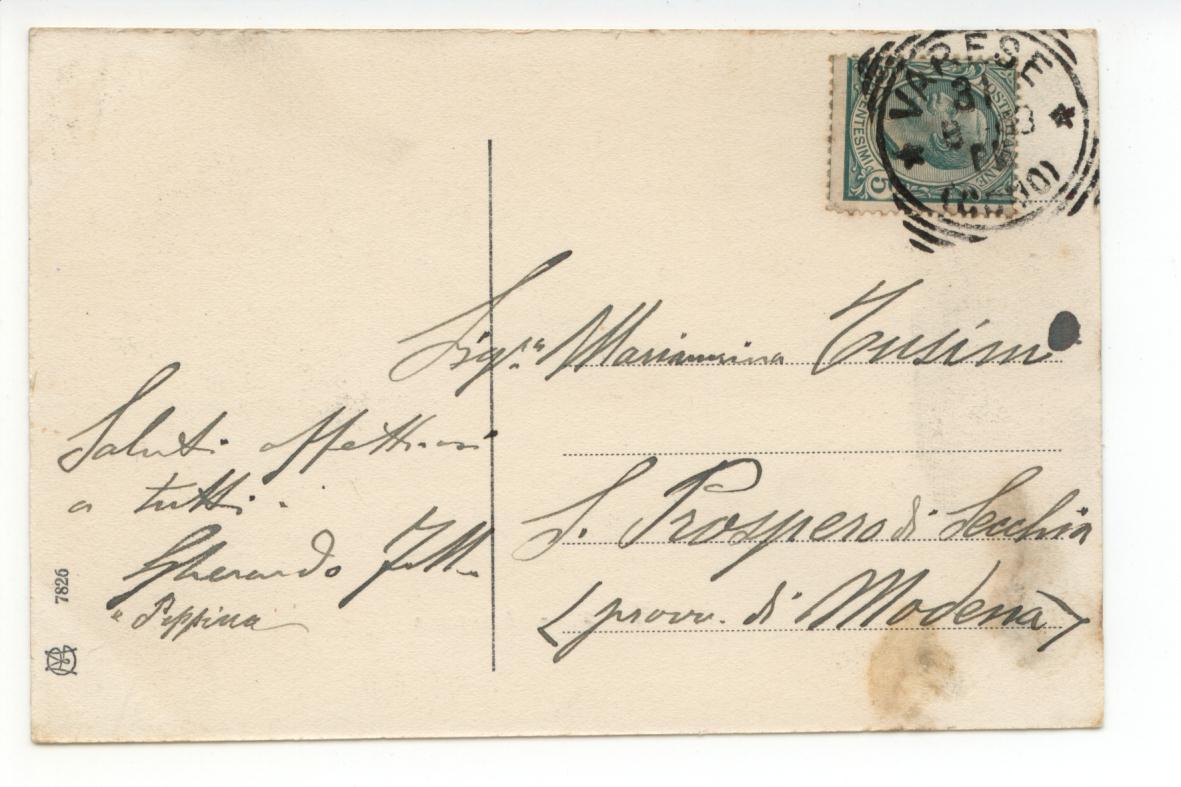 VARESE
(COMO)
POSTE ITALIANE
CENTESIMI 5
Sig.ra Mariannina Tusini
S. Prospero di Secchia
(prov. di Modena)
Saluti affettuosi
a tutti.
Gherardo
e Peppina
7826